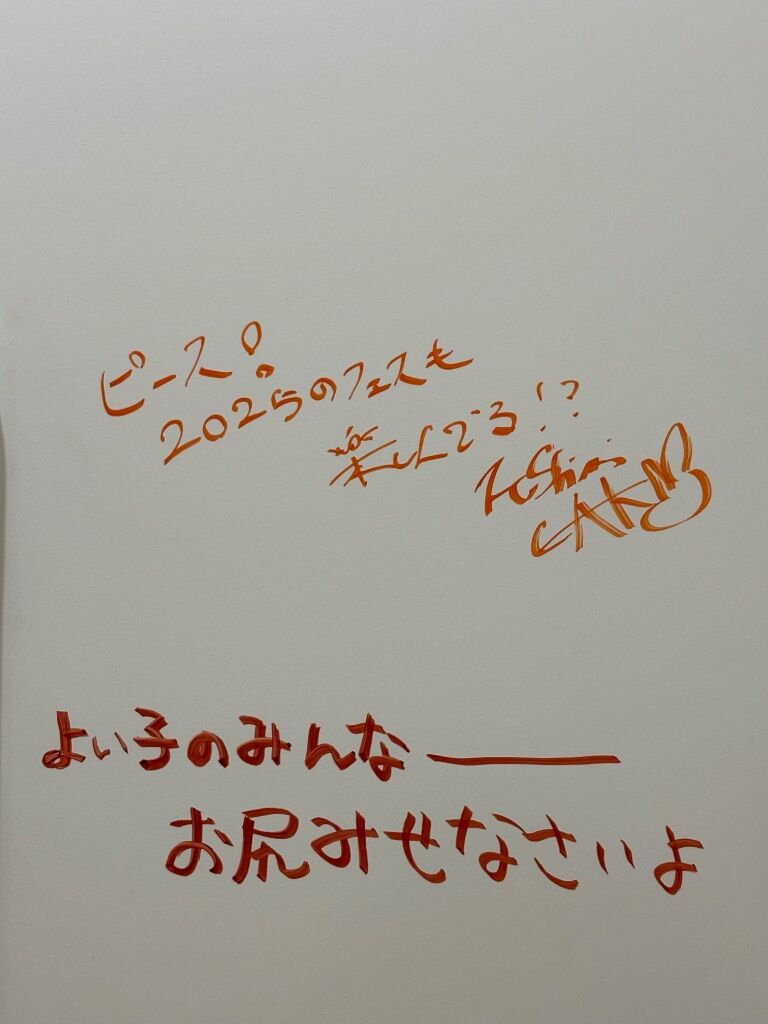 ピース!
2025のフェスも
楽しんでる!?
よい子のみんなー
お尻みせなさいよ